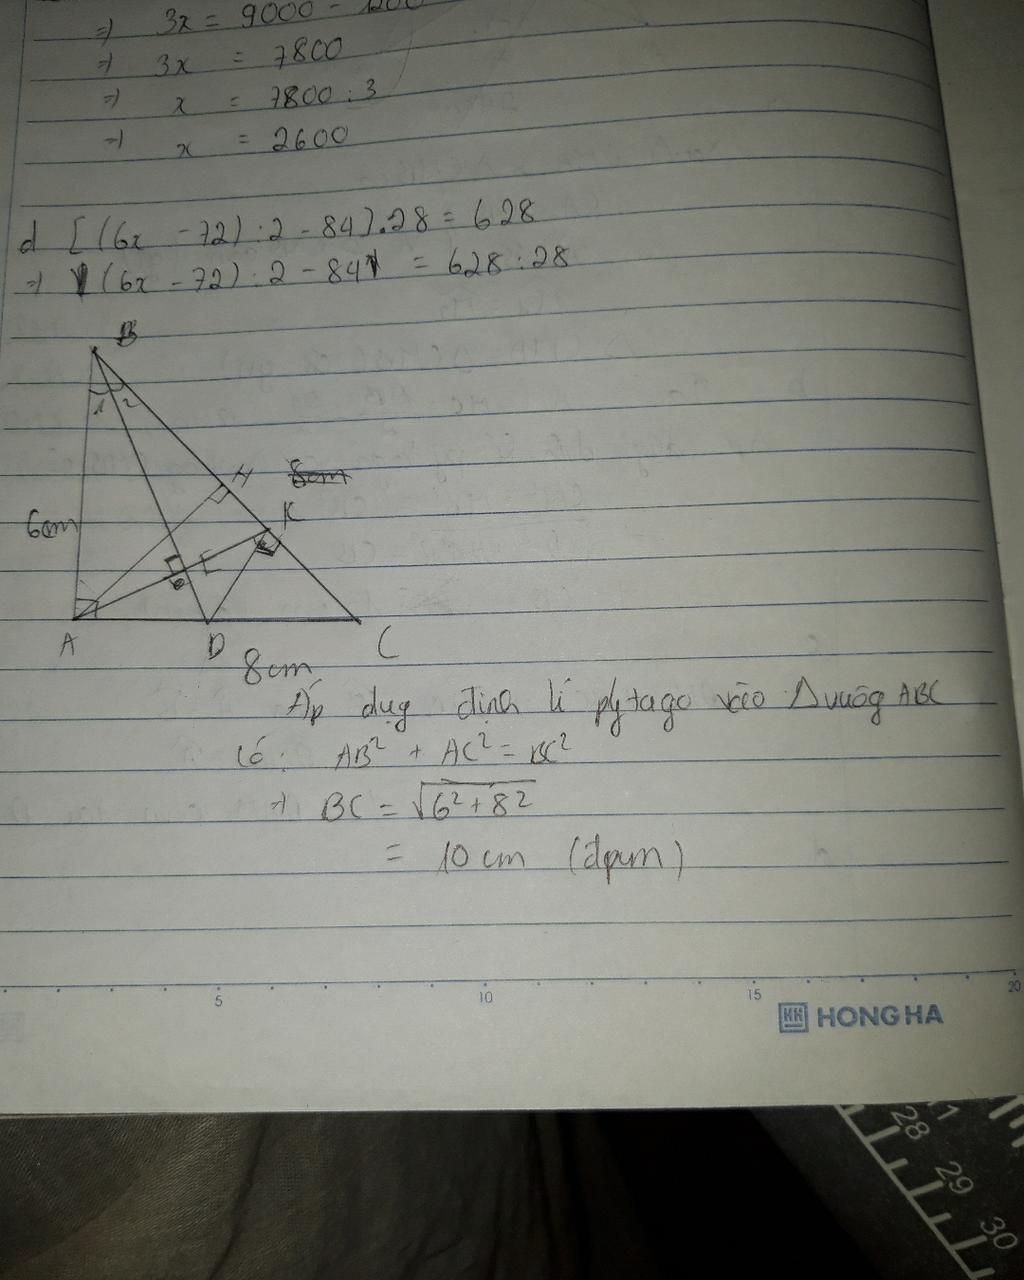 =) 3x = 9000 - 1200
=) 3x = 7800
=) x = 7800 : 3
=) x = 2600
d [(6x - 72) : 2 - 84] . 28 = 628
=) (6x - 72) : 2 - 84 = 628 : 28
B
1 2
H 8cm
K
6cm
E
A D C
8cm
Áp dụg định lí pytago vào Δ vuôg ABC
Có : AB² + AC² = BC²
=) BC = √6² + 8²
= 10 cm (đpcm)
5 10 15 20
HONG HA
28 29 30